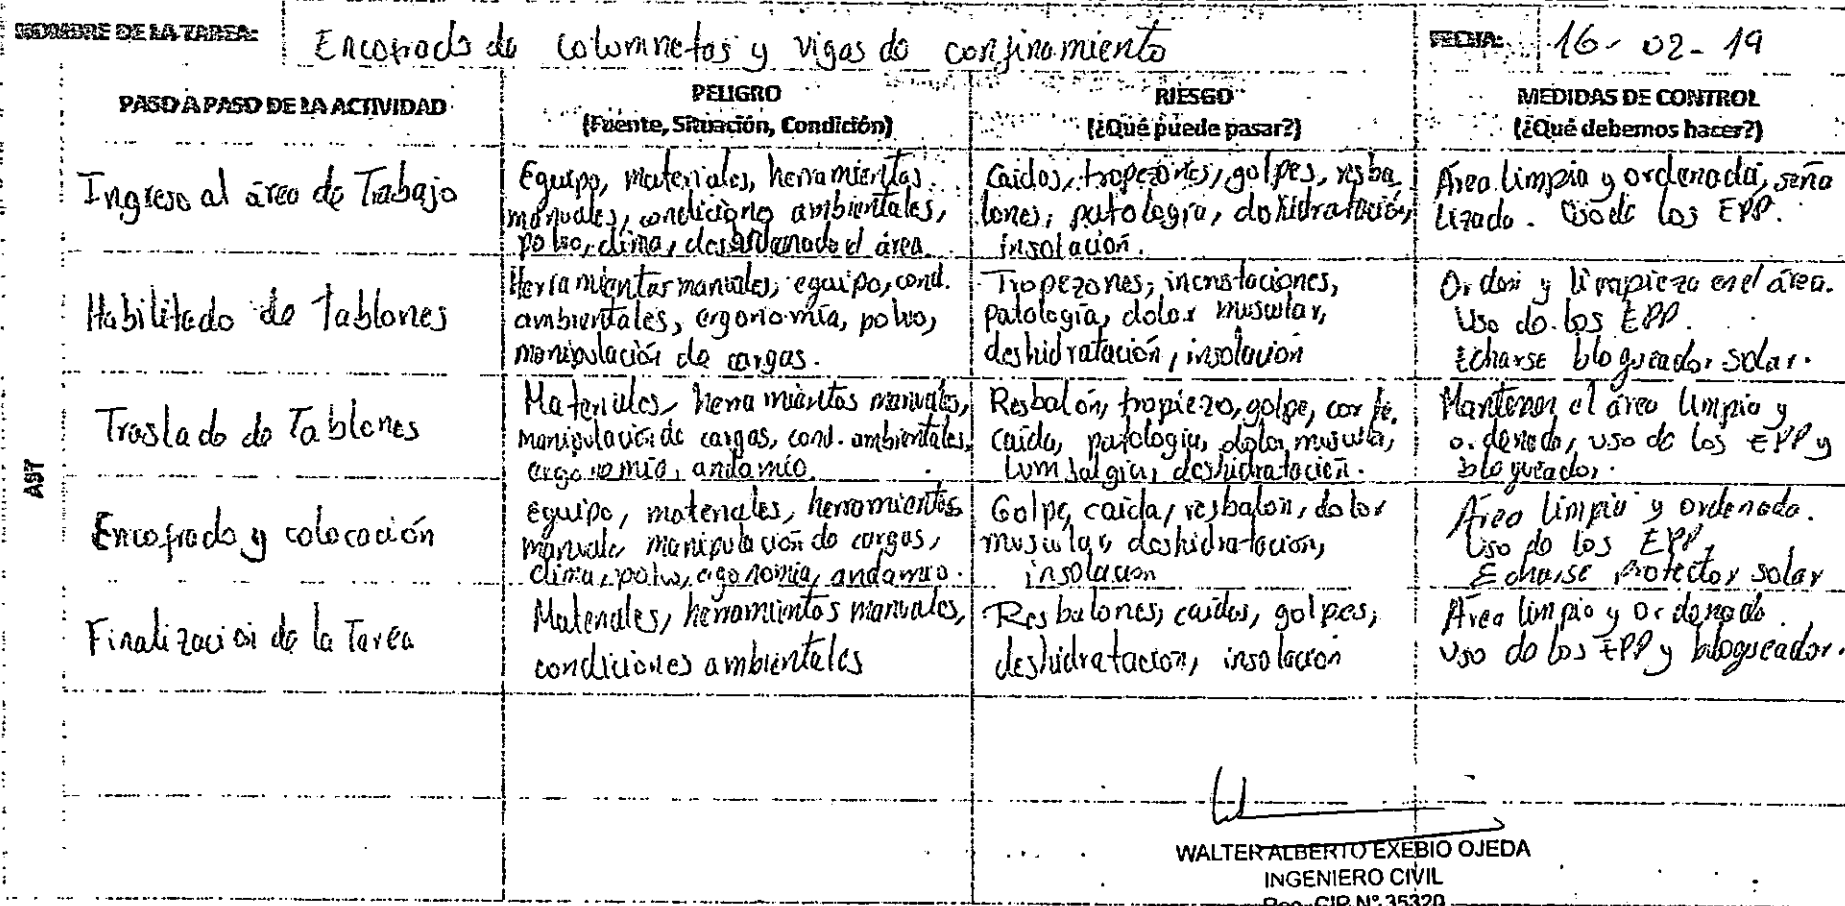 NOMBRE DE LA TAREA: Encofrado de columnetas y vigas de confinamiento FECHA: 16-02-19
PASO A PASO DE LA ACTIVIDAD
PELIGRO
(Fuente, Situación, Condición)
RIESGO
(¿Qué puede pasar?)
MEDIDAS DE CONTROL
(¿Qué debemos hacer?)
AST
Ingreso al área de Trabajo
Equipo, materiales, herramientas
manuales, condiciones ambientales,
polvo, clima, desordenado el área.
Caidas, tropezones, golpes, resba
lones, patología, deshidratación,
insolación.
Área limpia y ordenada, seña
lizado. Uso de los EPP.
Habilitado de Tablones
Herramientas manuales, equipo, cond.
ambientales, ergonomía, polvo,
manipulación de cargas.
Tropezones, incrustaciones,
patología, dolor muscular,
deshidratación, insolación
Orden y limpieza en el área.
Uso de los EPP.
Echarse bloqueador solar.
Traslado de Tablones
Materiales, herramientas manuales,
manipulación de cargas, cond. ambientales,
ergonomía, andamio.
Resbalón, tropiezo, golpe, corte,
caída, patología, dolor muscular,
lumbalgia, deshidratación.
Mantener el área limpia y
ordenada, uso de los EPP y
bloqueador.
Encofrado y colocación
equipo, materiales, herramientas
manuales manipulación de cargas,
clima, polvo, ergonomía, andamio.
Golpe, caída, resbalón, dolor
muscular, deshidratación,
insolación
Área limpia y ordenada.
Uso de los EPP.
Echarse protector solar
Finalización de la Tarea
Materiales, herramientas manuales,
condiciones ambientales
Resbalones, caídas, golpes,
deshidratación, insolación
Área limpia y ordenada.
Uso de los EPP y bloqueador.
WALTER ALBERTO EXEBIO OJEDA
INGENIERO CIVIL
Reg. CIP N° 35320